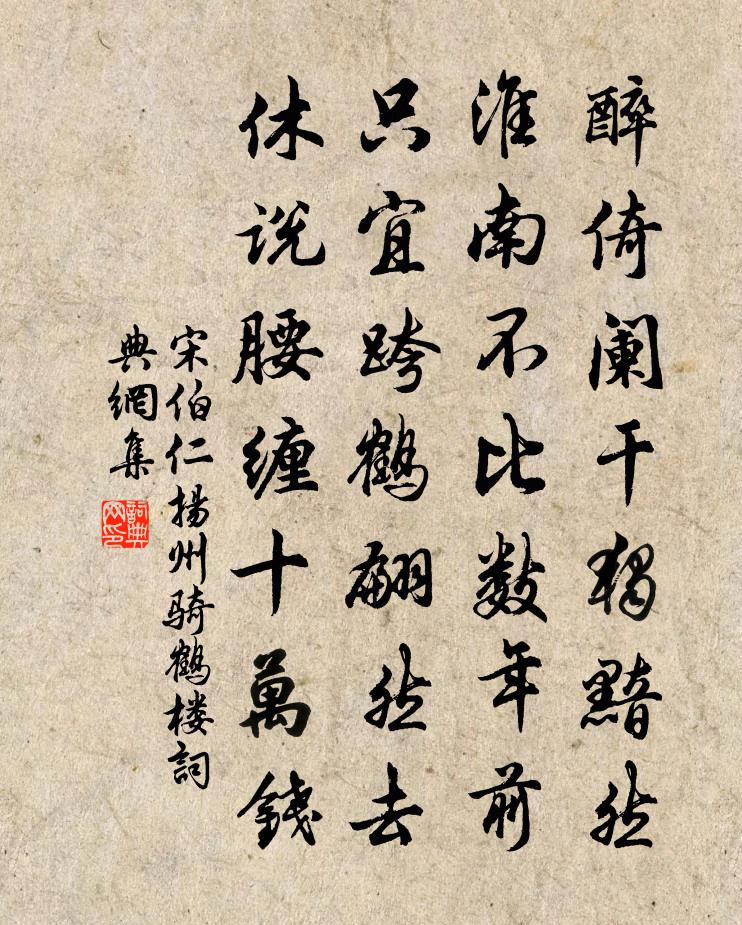 醉倚阑干独黯然
淮南不比数年前
只宜跨鹤翩然去
休说腰缠十萬錢
宋伯仁揚州骑鹤楼詞
典網集
詞典
网印